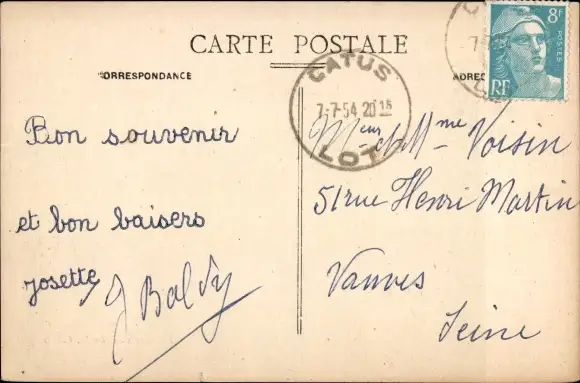 CARTE POSTALE
CORRESPONDANCE
ADRES
8F
POSTES
RF
CATUS
7-7-54 20 15
LOT
Bon souvenir
et bon baisers
Josette J Baldy
Meur et Mme Voisin
51 rue Henri Martin
Vanves
Seine